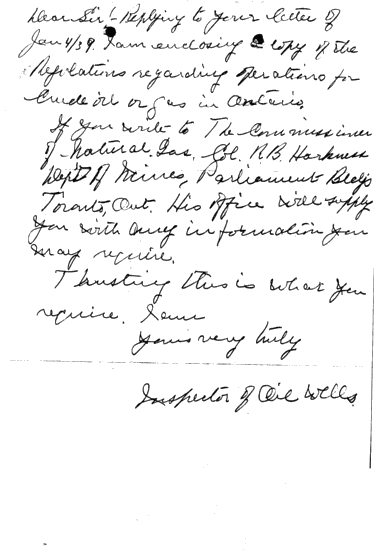 Dear Sir:- Replying to your letter of
Jan 4/39. I am enclosing a copy of the
Regulations regarding operations for
Crude oil or gas in Ontario.
If you write to The Commissioner
of Natural Gas, Col. R.B. Harkness
Dept of Mines, Parliament Bldgs
Toronto, Ont. His office will supply
you with any information you
may require.
Trusting this is what you
require. I am
Yours very truly
Inspector of Oil Wells.